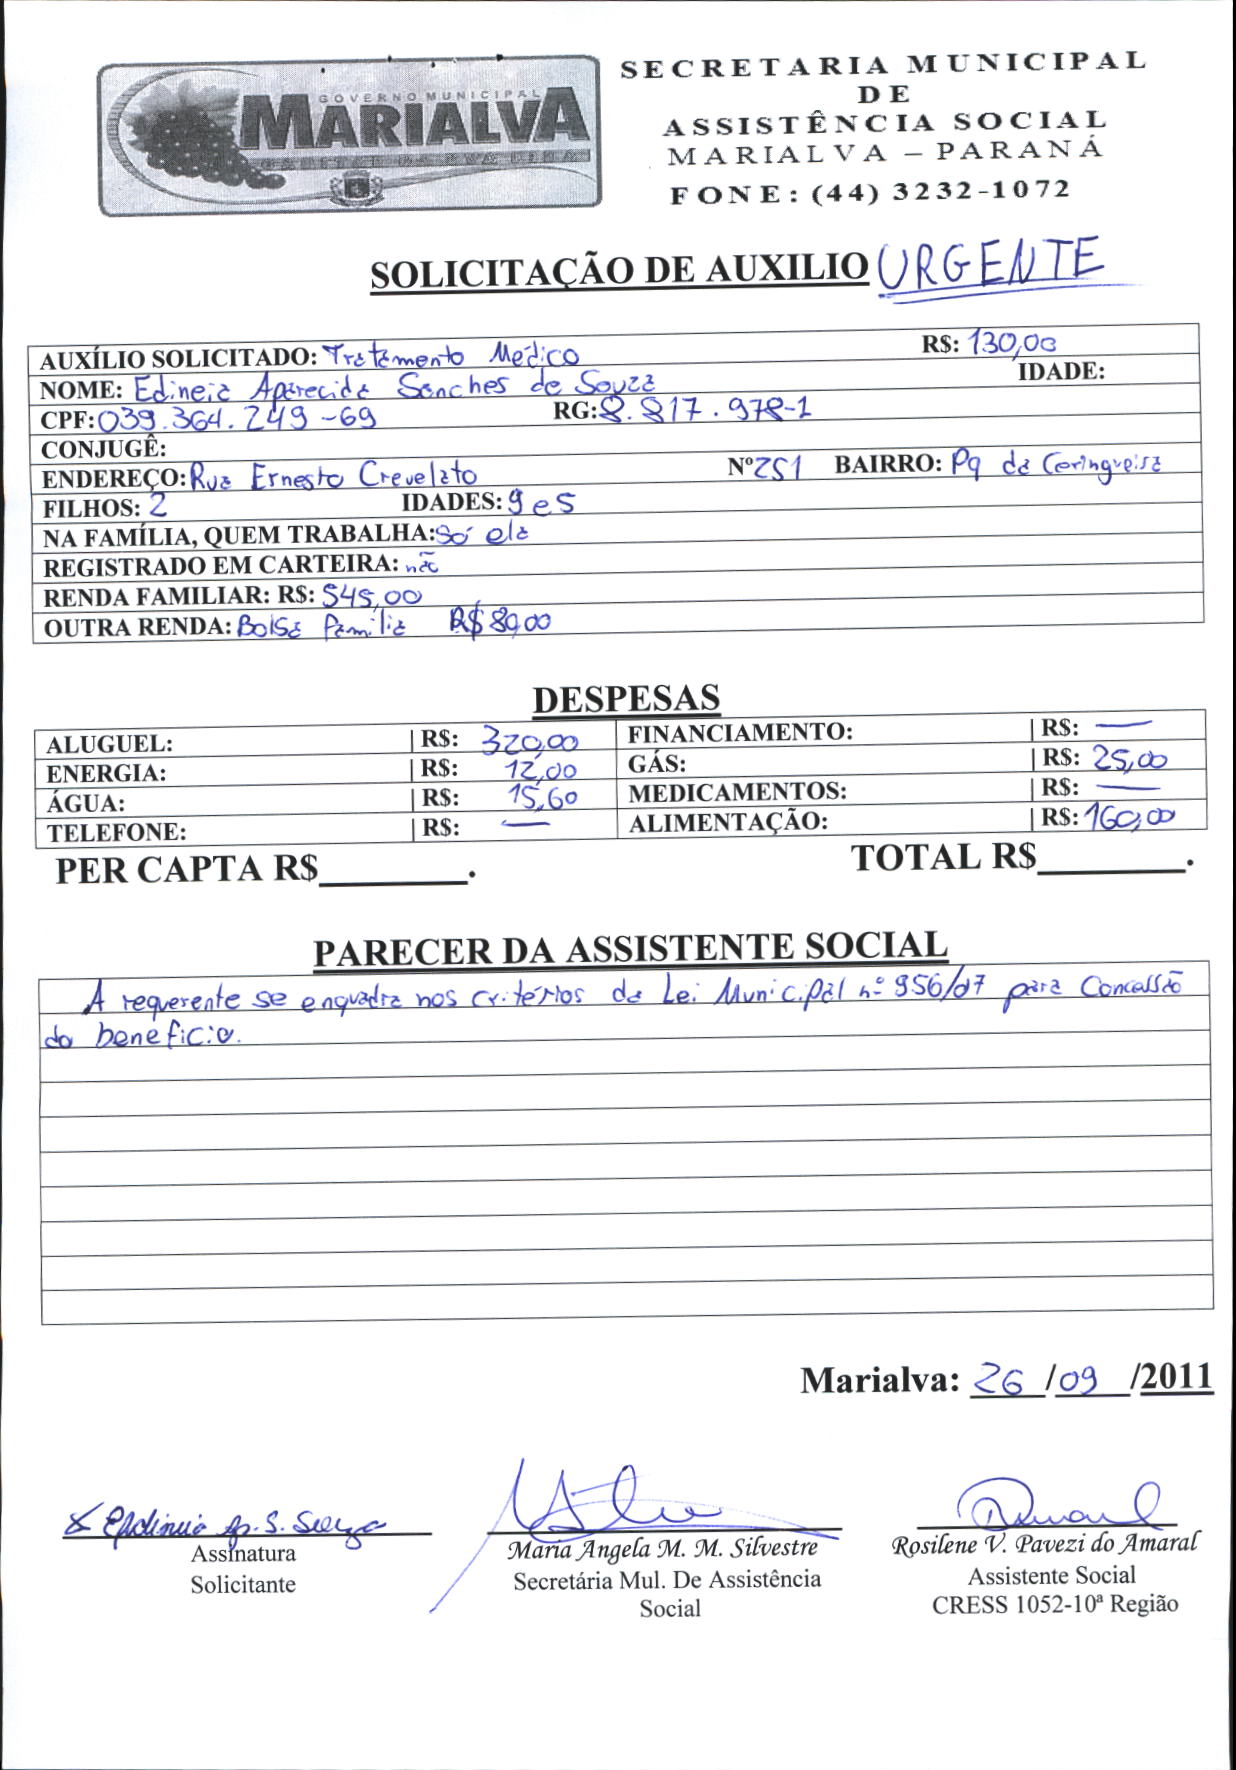 GOVERNO MUNICIPAL
MARIALVA
CAPITAL DA UVA FINA
SECRETARIA MUNICIPAL
DE
ASSISTÊNCIA SOCIAL
MARIALVA – PARANÁ
FONE: (44) 3232-1072
SOLICITAÇÃO DE AUXILIO URGENTE
AUXÍLIO SOLICITADO: Tratamento Médico R$: 130,00
NOME: Edineia Aparecida Sanches de Souza IDADE:
CPF: 039.364.249-69 RG: 8.817.978-1
CONJUGÊ:
ENDEREÇO: Rua Ernesto Crevelato Nº 251 BAIRRO: Pq da Ceringueira
FILHOS: 2 IDADES: 9 e 5
NA FAMÍLIA, QUEM TRABALHA: Só ela
REGISTRADO EM CARTEIRA: não
RENDA FAMILIAR: R$: 545,00
OUTRA RENDA: Bolsa Familia R$ 80,00
DESPESAS
ALUGUEL: | R$: 320,00 FINANCIAMENTO: | R$: —
ENERGIA: | R$: 12,00 GÁS: | R$: 25,00
ÁGUA: | R$: 15,60 MEDICAMENTOS: | R$: —
TELEFONE: | R$: — ALIMENTAÇÃO: | R$: 160,00
PER CAPTA R$________. TOTAL R$________.
PARECER DA ASSISTENTE SOCIAL
A requerente se enquadra nos critérios da Lei Municipal nº 956/07 para Concessão
do beneficio.
Marialva: 26/09/2011
Edineia Ap. S. Souza
Assinatura
Solicitante
Maria Angela M. M. Silvestre
Secretária Mul. De Assistência
Social
Rosilene V. Pavezi do Amaral
Assistente Social
CRESS 1052-10ª Região